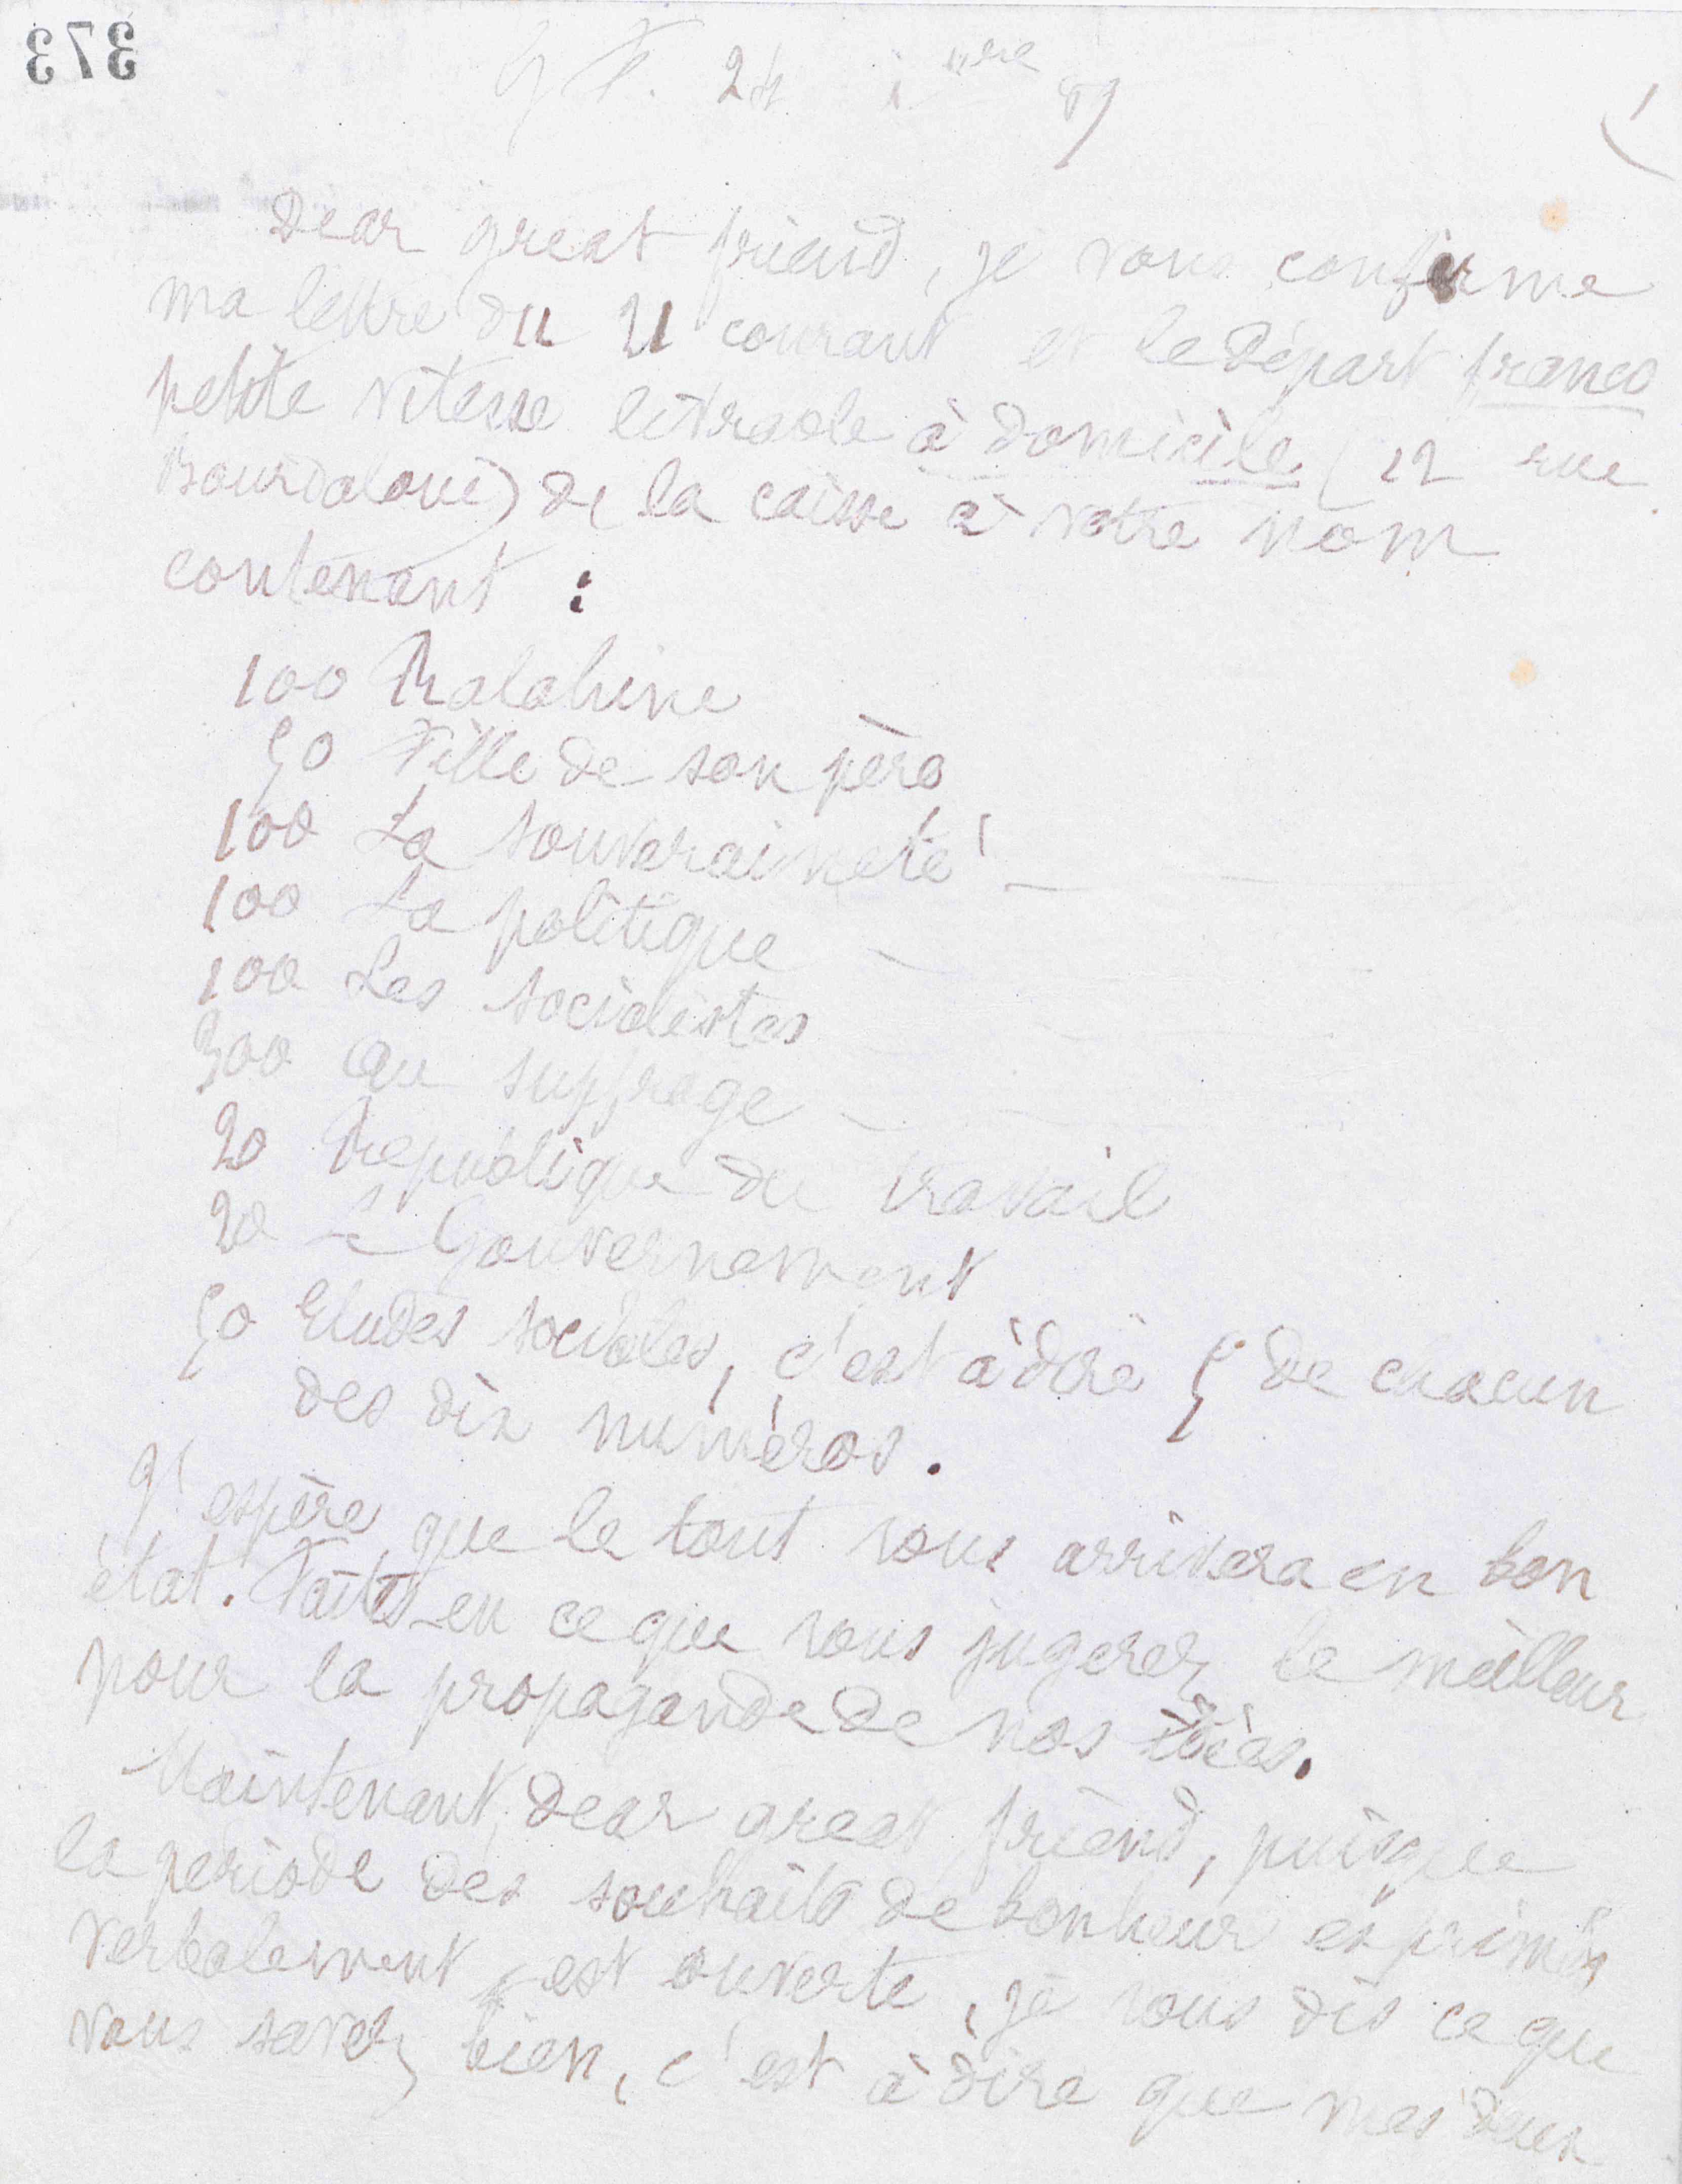 373
24 89
Dear great friend, je vous confirme
ma lettre du 21 courant et le départ franco
petite vitesse livrable à domicile (12 rue
Bourdaloue) de la caisse à votre nom
contenant :
100 Ralahine
50 Fille de son père
100 La souveraineté _
100 La politique _
100 Les socialistes
300 Au suffrage _
20 République du travail
20 Le Gouvernement
50 Etudes sociales, c'est à dire 5 de chacun
des dix numéros.
J'espère que le tout vous arrivera en bon
état. Faites-en ce que vous jugerez le meilleur
pour la propagande de nos idées.
Maintenant, dear great friend, puisque
la période des souhaits de bonheur exprimés
verbalement est ouverte, je vous dis ce que
vous savez bien, c'est à dire que mes deux